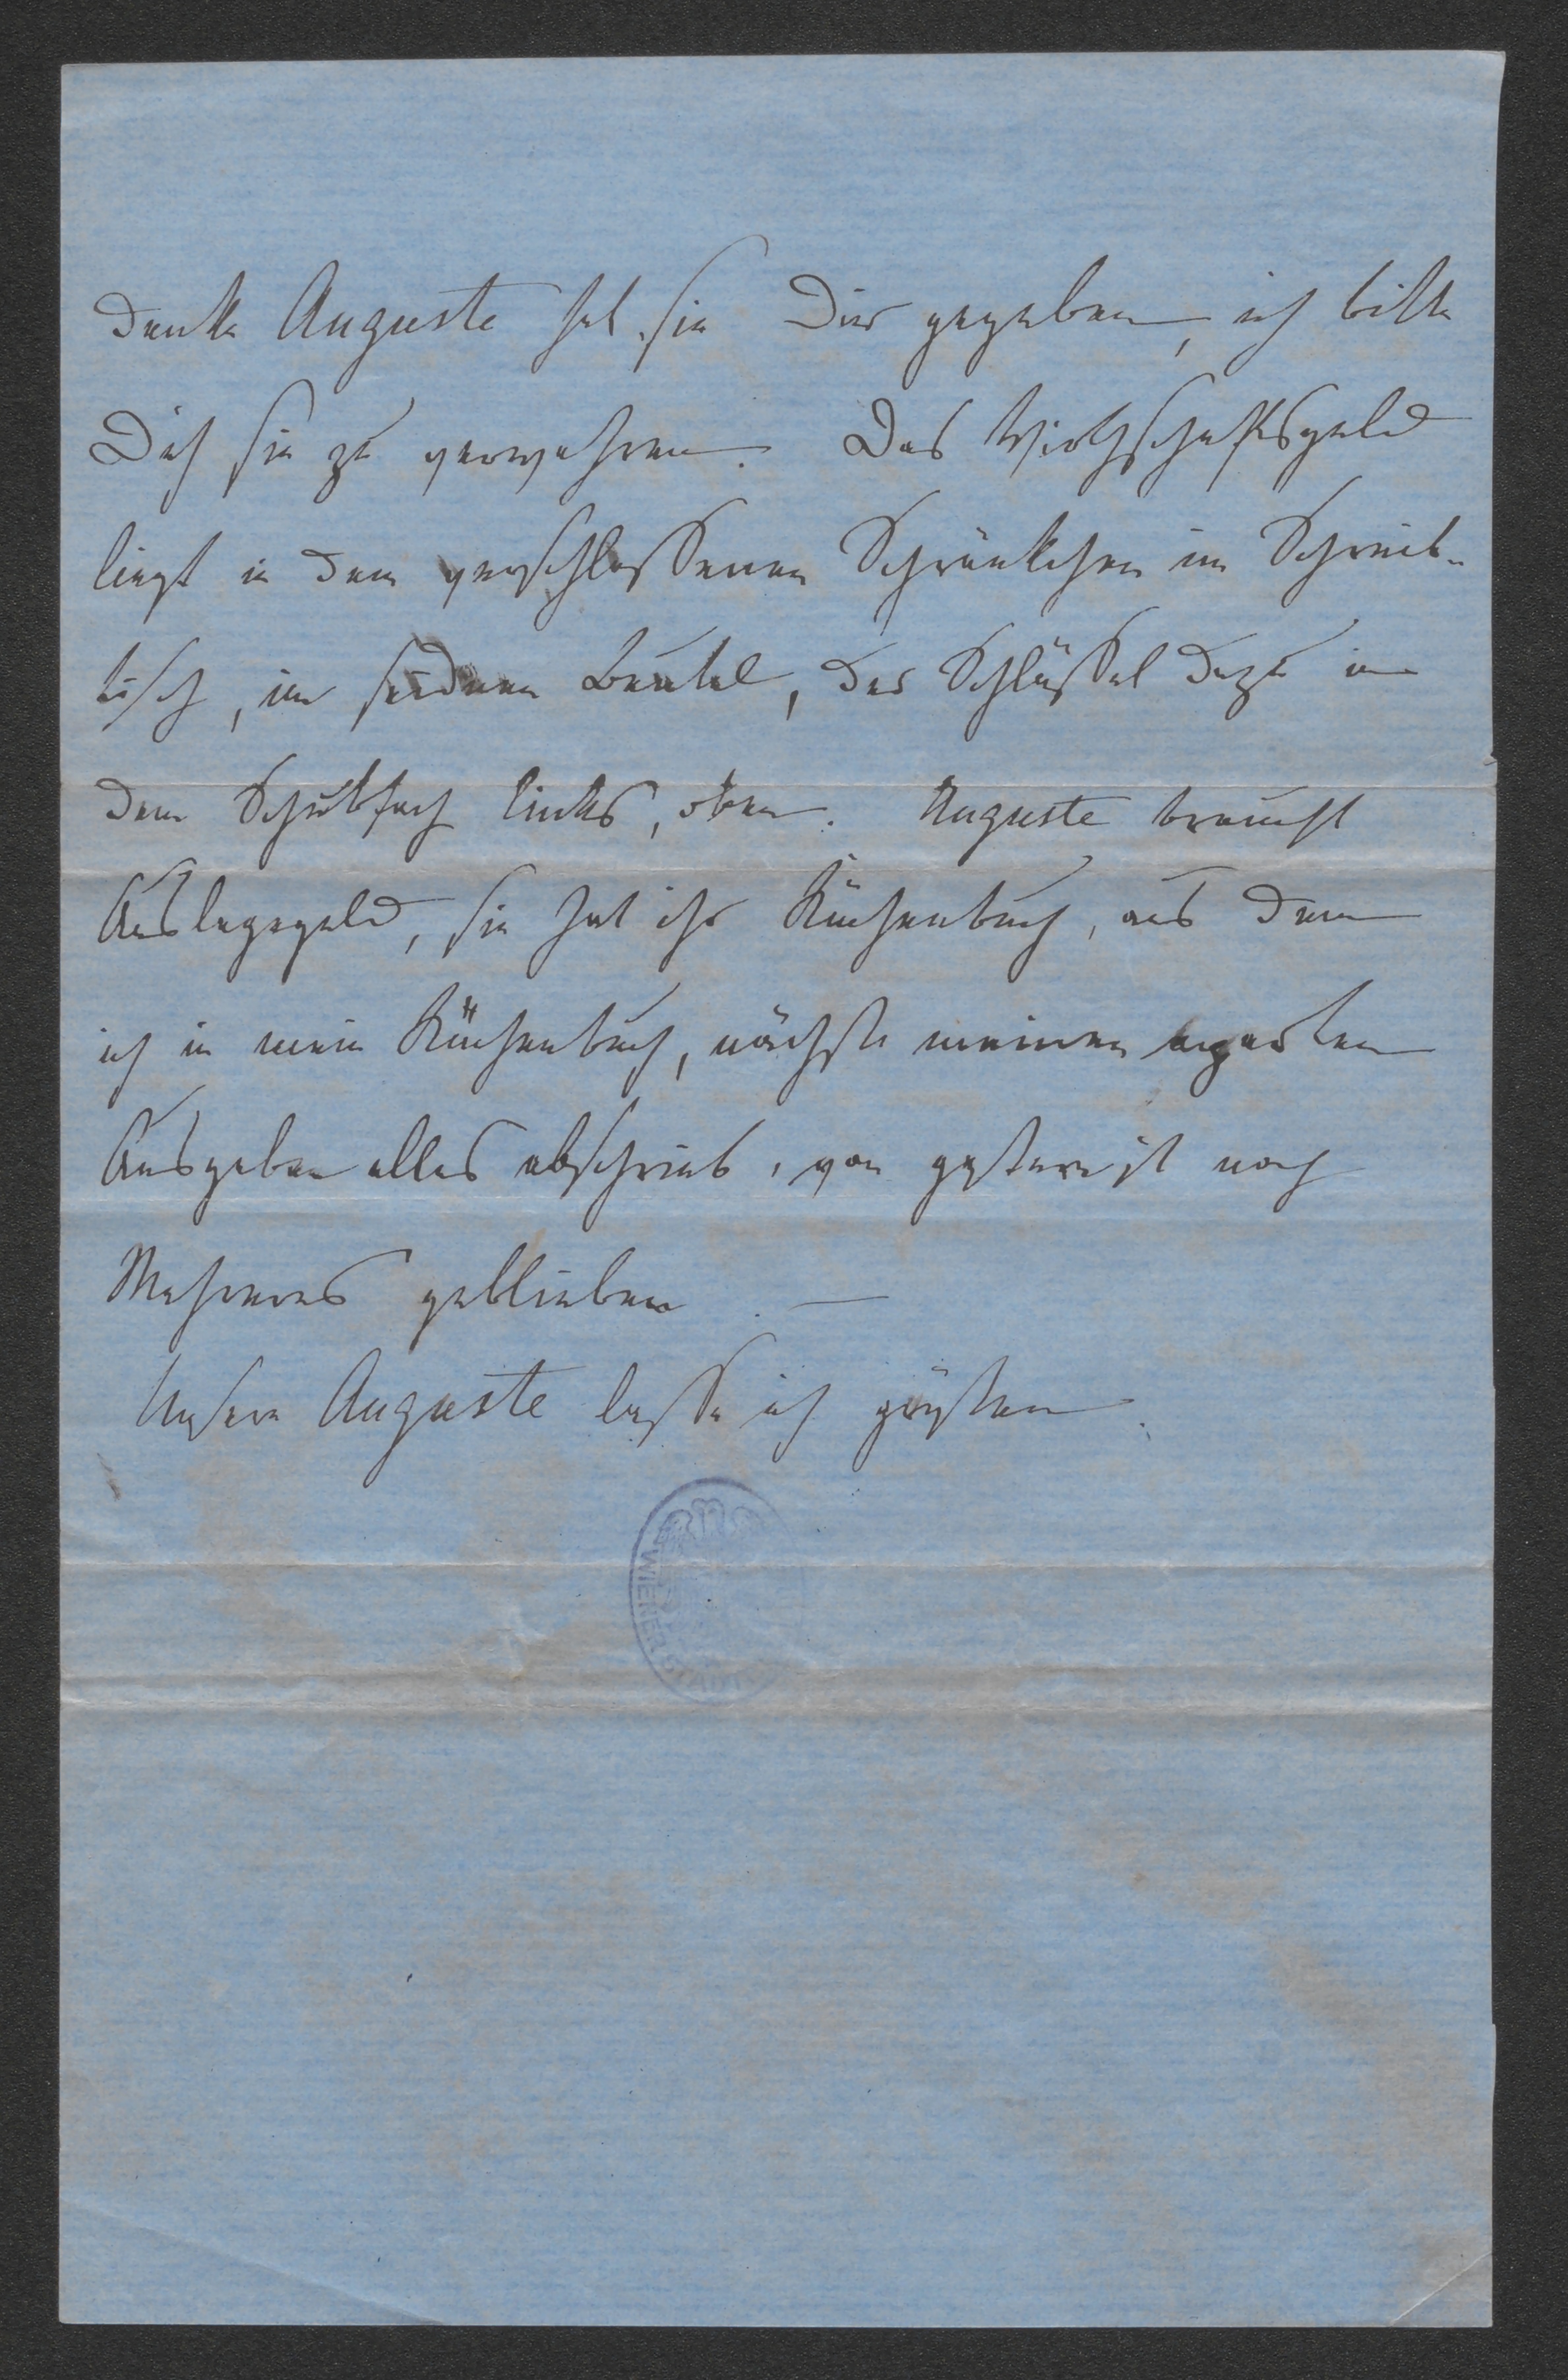 denke Auguste hat sie Dir gegeben, ich bitte
Dich sie zu verwahren. Das Wirthschaftsgeld
liegt in dem verschlossenen Schränkchen im Schreib-
tisch, im seidnen Beutel, der Schlüssel dazu in
dem Schubfach links, oben. Auguste braucht
Auslagegeld, sie hat ihr Küchenbuch, aus dem
ich in mein Küchenbuch, nächst meinen aparten
Ausgaben alles abschrieb, von gestern ist noch
Mehreres geblieben. —
Unsere Auguste lasse ich grüßen.
WIENER STADT